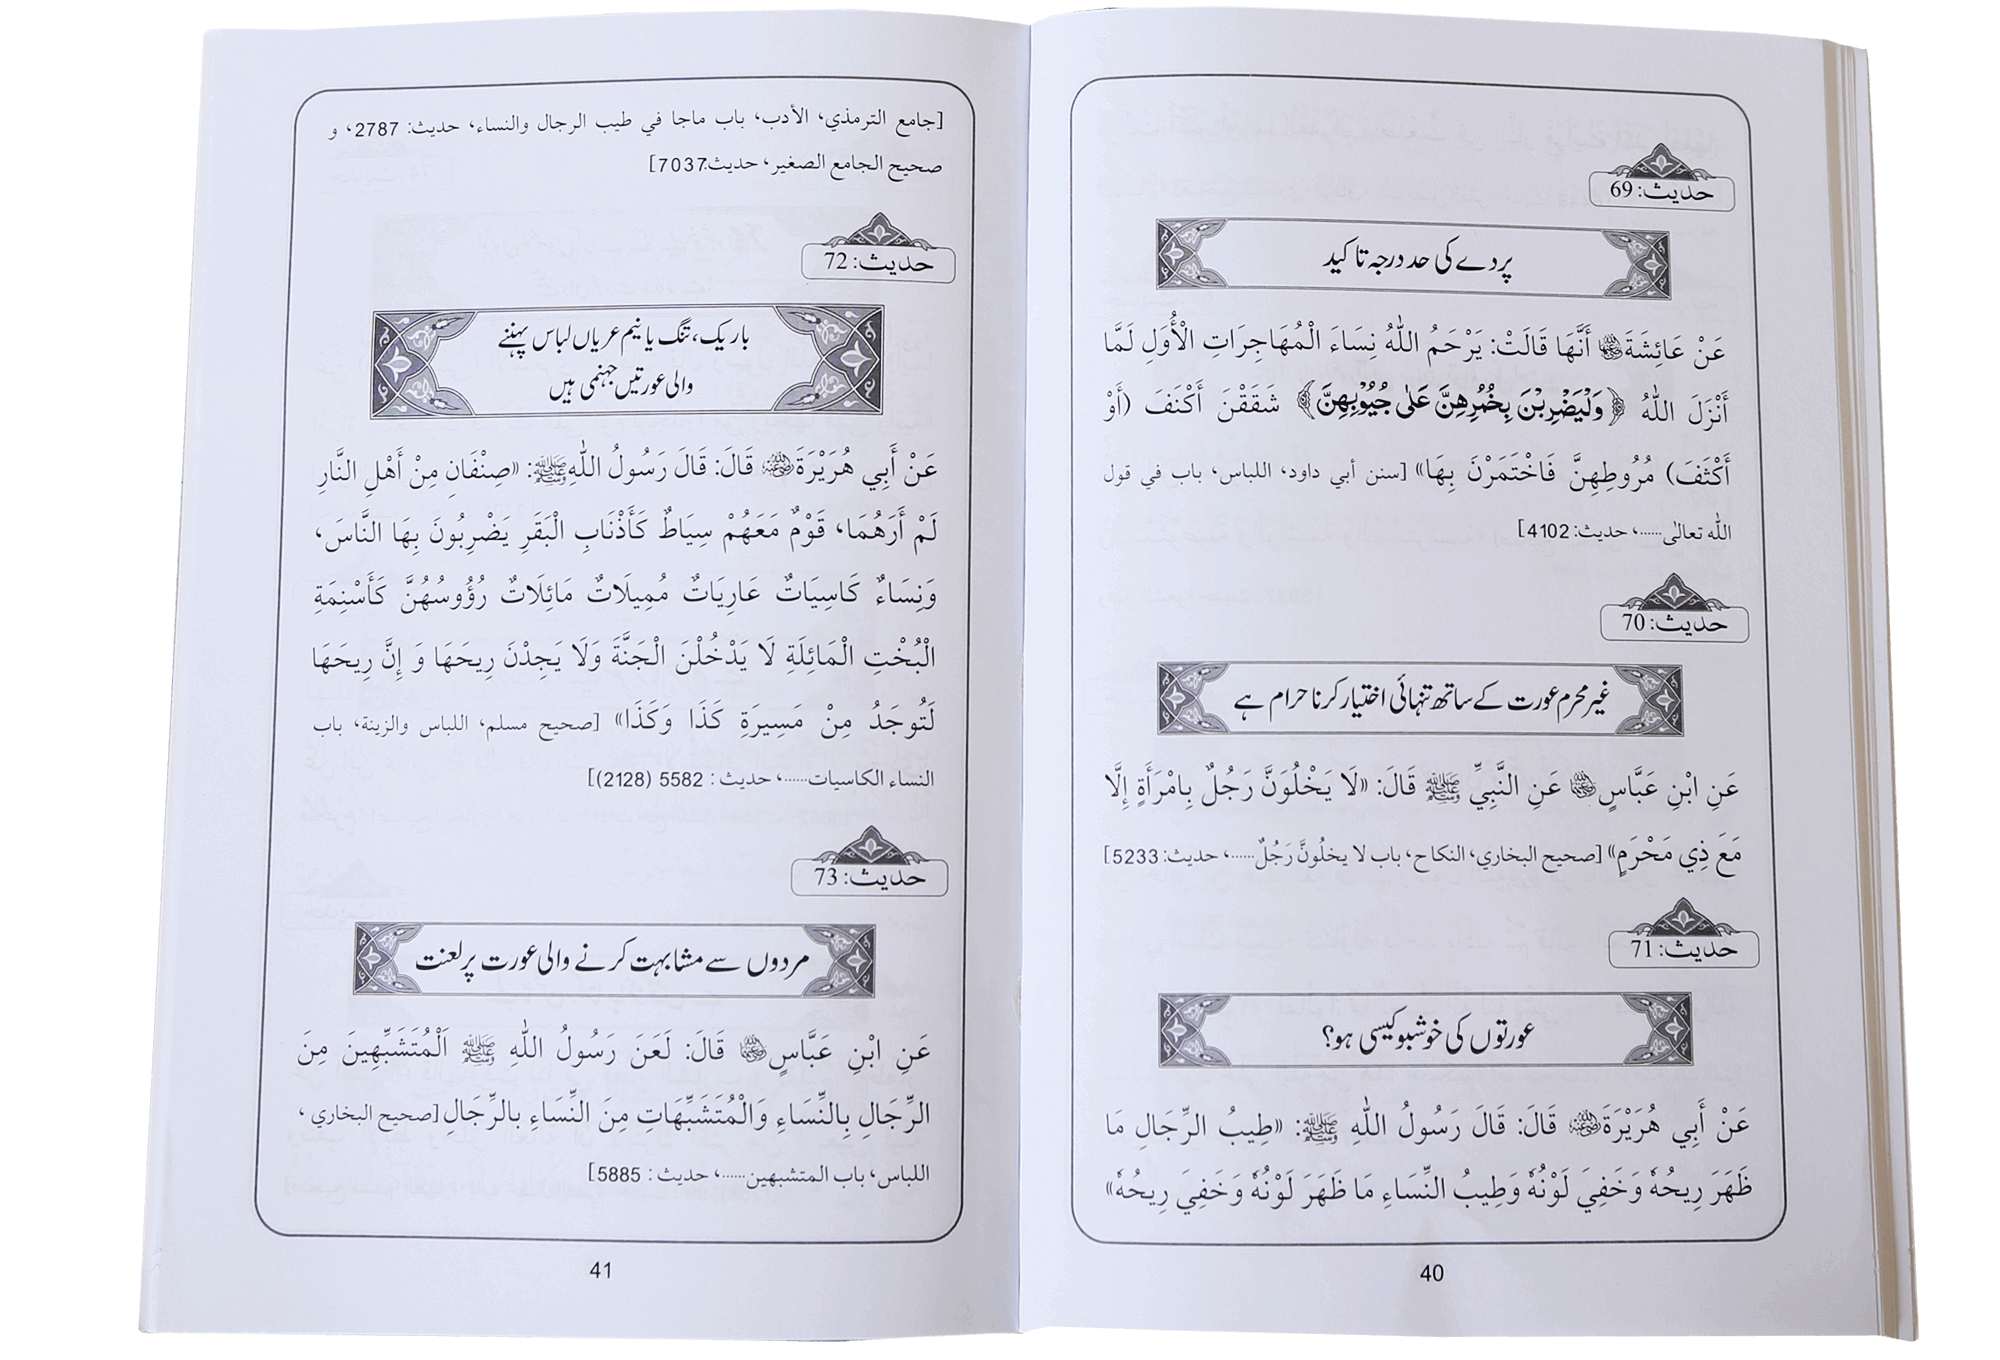 حدیث: 69
پردے کی حد درجہ تاکید
عَنْ عَائِشَةَ رضی اللہ عنہا أَنَّهَا قَالَتْ: يَرْحَمُ اللّٰهُ نِسَاءَ الْمُهَاجِرَاتِ الْأُوَلِ لَمَّا
أَنْزَلَ اللّٰهُ ﴿وَلْيَضْرِبْنَ بِخُمُرِهِنَّ عَلٰى جُيُوْبِهِنَّ﴾ شَقَقْنَ أَكْنَفَ (أَوْ
أَكْثَفَ) مُرُوطِهِنَّ فَاخْتَمَرْنَ بِهَا» [سنن أبي داود، اللباس، باب في قول
اللّٰه تعالى......، حديث: 4102]
حدیث: 70
غیر محرم عورت کے ساتھ تنہائی اختیار کرنا حرام ہے
عَنِ ابْنِ عَبَّاسٍ رضی اللہ عنہما عَنِ النَّبِيِّ ﷺ قَالَ: «لَا يَخْلُوَنَّ رَجُلٌ بِامْرَأَةٍ إِلَّا
مَعَ ذِي مَحْرَمٍ» [صحيح البخاري، النكاح، باب لا يخلُونَّ رَجُلٌ......، حديث: 5233]
حدیث: 71
عورتوں کی خوشبو کیسی ہو؟
عَنْ أَبِي هُرَيْرَةَ رضی اللہ عنہ قَالَ: قَالَ رَسُولُ اللّٰهِ ﷺ: «طِيبُ الرِّجَالِ مَا
ظَهَرَ رِيحُهٗ وَخَفِيَ لَوْنُهٗ وَطِيبُ النِّسَاءِ مَا ظَهَرَ لَوْنُهٗ وَخَفِيَ رِيحُهٗ»
40
[جامع الترمذي، الأدب، باب ماجا في طيب الرجال والنساء، حديث: 2787، و
صحيح الجامع الصغير، حديث:7037]
حدیث: 72
باریک، تنگ یا نیم عریاں لباس پہننے
والی عورتیں جہنمی ہیں
عَنْ أَبِي هُرَيْرَةَ رضی اللہ عنہ قَالَ: قَالَ رَسُولُ اللّٰهِ ﷺ: «صِنْفَانِ مِنْ أَهْلِ النَّارِ
لَمْ أَرَهُمَا، قَوْمٌ مَعَهُمْ سِيَاطٌ كَأَذْنَابِ الْبَقَرِ يَضْرِبُونَ بِهَا النَّاسَ،
وَنِسَاءٌ كَاسِيَاتٌ عَارِيَاتٌ مُمِيلَاتٌ مَائِلَاتٌ رُؤُوسُهُنَّ كَأَسْنِمَةِ
الْبُخْتِ الْمَائِلَةِ لَا يَدْخُلْنَ الْجَنَّةَ وَلَا يَجِدْنَ رِيحَهَا وَ إِنَّ رِيحَهَا
لَتُوجَدُ مِنْ مَسِيرَةِ كَذَا وَكَذَا» [صحيح مسلم، اللباس والزينة، باب
النساء الكاسيات......، حديث : 5582 (2128)]
حدیث: 73
مردوں سے مشابہت کرنے والی عورت پر لعنت
عَنِ ابْنِ عَبَّاسٍ رضی اللہ عنہما قَالَ: لَعَنَ رَسُولُ اللّٰهِ ﷺ اَلْمُتَشَبِّهِينَ مِنَ
الرِّجَالِ بِالنِّسَاءِ وَالْمُتَشَبِّهَاتِ مِنَ النِّسَاءِ بالرِّجَالِ [صحيح البخاري ،
اللباس، باب المتشبهين......، حديث : 5885]
41